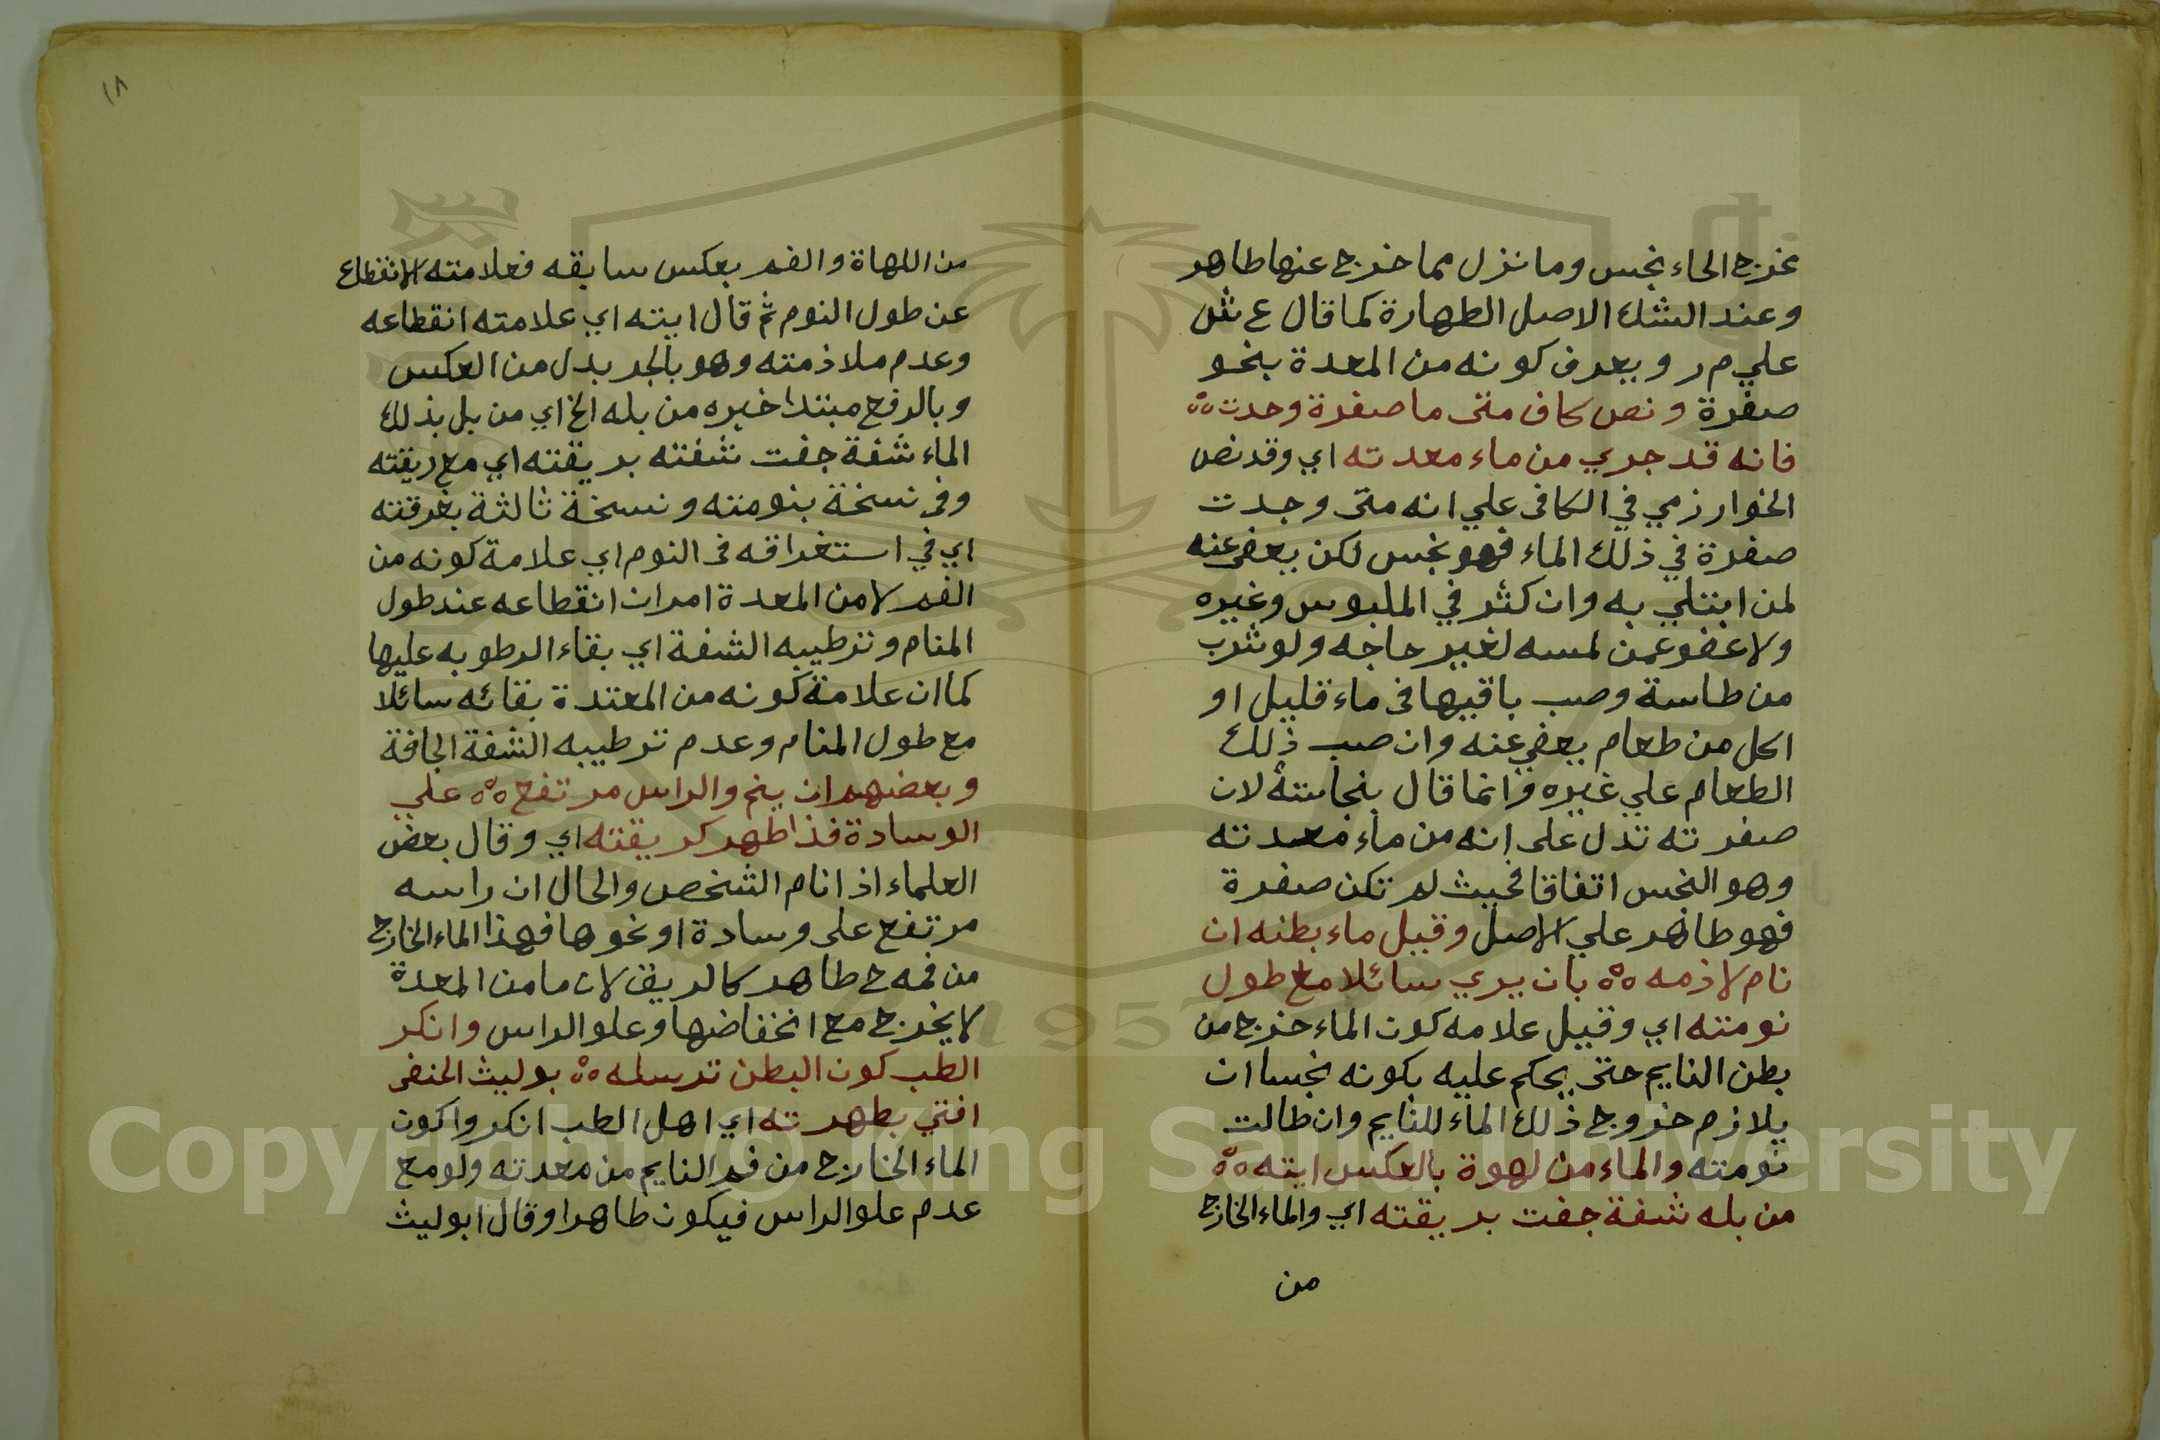 مخرج الحاء نجس وما نزل مما خرج عنها طاهر
وعند الشك الاصل الطهارة كما قال ع ش
علي م ر ويعرف كونه من المعدة بنحو
صفرة ونص كاف متى ما صفرة وجدت ۵۵
فانه قد جري من ماء معدته اي وقد نص
الخوارزمي في الكافى علي انه متى وجدت
صفرة في ذلك الماء فهو نجس لكن يعفى عنه
لمن ابتلي به وان كثر في الملبوس وغيره
ولا عفو عمن لمسه لغير حاجه ولو شرب
من طاسة وصب باقيها فى ماء قليل او
اكل من طعام يعفي عنه وان صب ذلك
الطعام علي غيره وانما قال بنجاسته لان
صفرته تدل على انه من ماء معدته
وهو النجس اتفاقا فحيث لم تكن صفرة
فهو طاهر علي الاصل وقيل ماء بطنه ان
نام لازمه ۵۵ بان يري سائلا مع طول
نومته اي وقيل علامه كون الماء خرج من
بطن النايم حتى يحكم عليه بكونه نجسا ان
يلازم خروج ذلك الماء للنايم وان طالت
نومته والماء من لهوة بالعكس ايته ۵۵
من بله شفة جفت بريقته اي والماء الخارج
من
١٨
من اللهاة والفم بعكس سابقه فعلامته الانقطاع
عن طول النوم ثم قال ايته اي علامته انقطاعه
وعدم ملازمته وهو بالجر بدل من العكس
وبالرفع مبتدا خبره من بله الخ اي من بل بذلك
الماء شفة جفت شفته بريقته اي مع ريقته
وفى نسخة بنومته ونسخة ثالثة بغرقته
اي في استغراقه فى النوم اي علامة كونه من
الفم لا من المعدة امران انقطاعه عند طول
المنام وترطيبه الشفة اي بقاء الرطوبه عليها
كما ان علامة كونه من المعتدة بقائه سائلا
مع طول المنام وعدم ترطيبه الشفة الجافة
وبعضهم ان ينم والراس مرتفع ۵۵ علي
الوسادة فذا طهر كريقته اي وقال بعض
العلماء اذا نام الشخص والحال ان راسه
مرتفع على وسادة او نحوها فهذا الماء الخارج
من فمه ح طاهر كالريق لان ما من المعدة
لا يخرج مع انخفاضها وعلو الراس وانكر
الطب كون البطن ترسله ۵۵ بوليث الحنفى
افتي بطهرته اي اهل الطب انكروا كون
الماء الخارج من فم النايم من معدته ولو مع
عدم علو الراس فيكون طاهرا وقال ابوليث
Copyright © King Saud University
1957